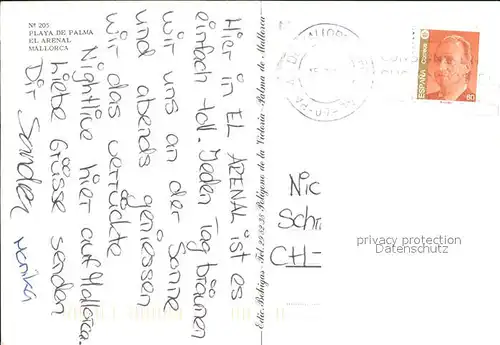 Nº 205
PLAYA DE PALMA
EL ARENAL
MALLORCA
Hier in EL ARENAL ist es
einfach toll. Jeden Tag bräunen
wir uns an der Sonne
und abends geniessen
wir das verrückte
Nightlife hier auf Mallorca.
Liebe Grüsse senden
Dir Sender
Monika
Edic. Bohigas - Tel. 29.32.38 - Polígono de la Victoria - Palma de Mallorca
ESPAÑA
CORREOS
60
Nic
Schr
CH-
privacy protection
Datenschutz